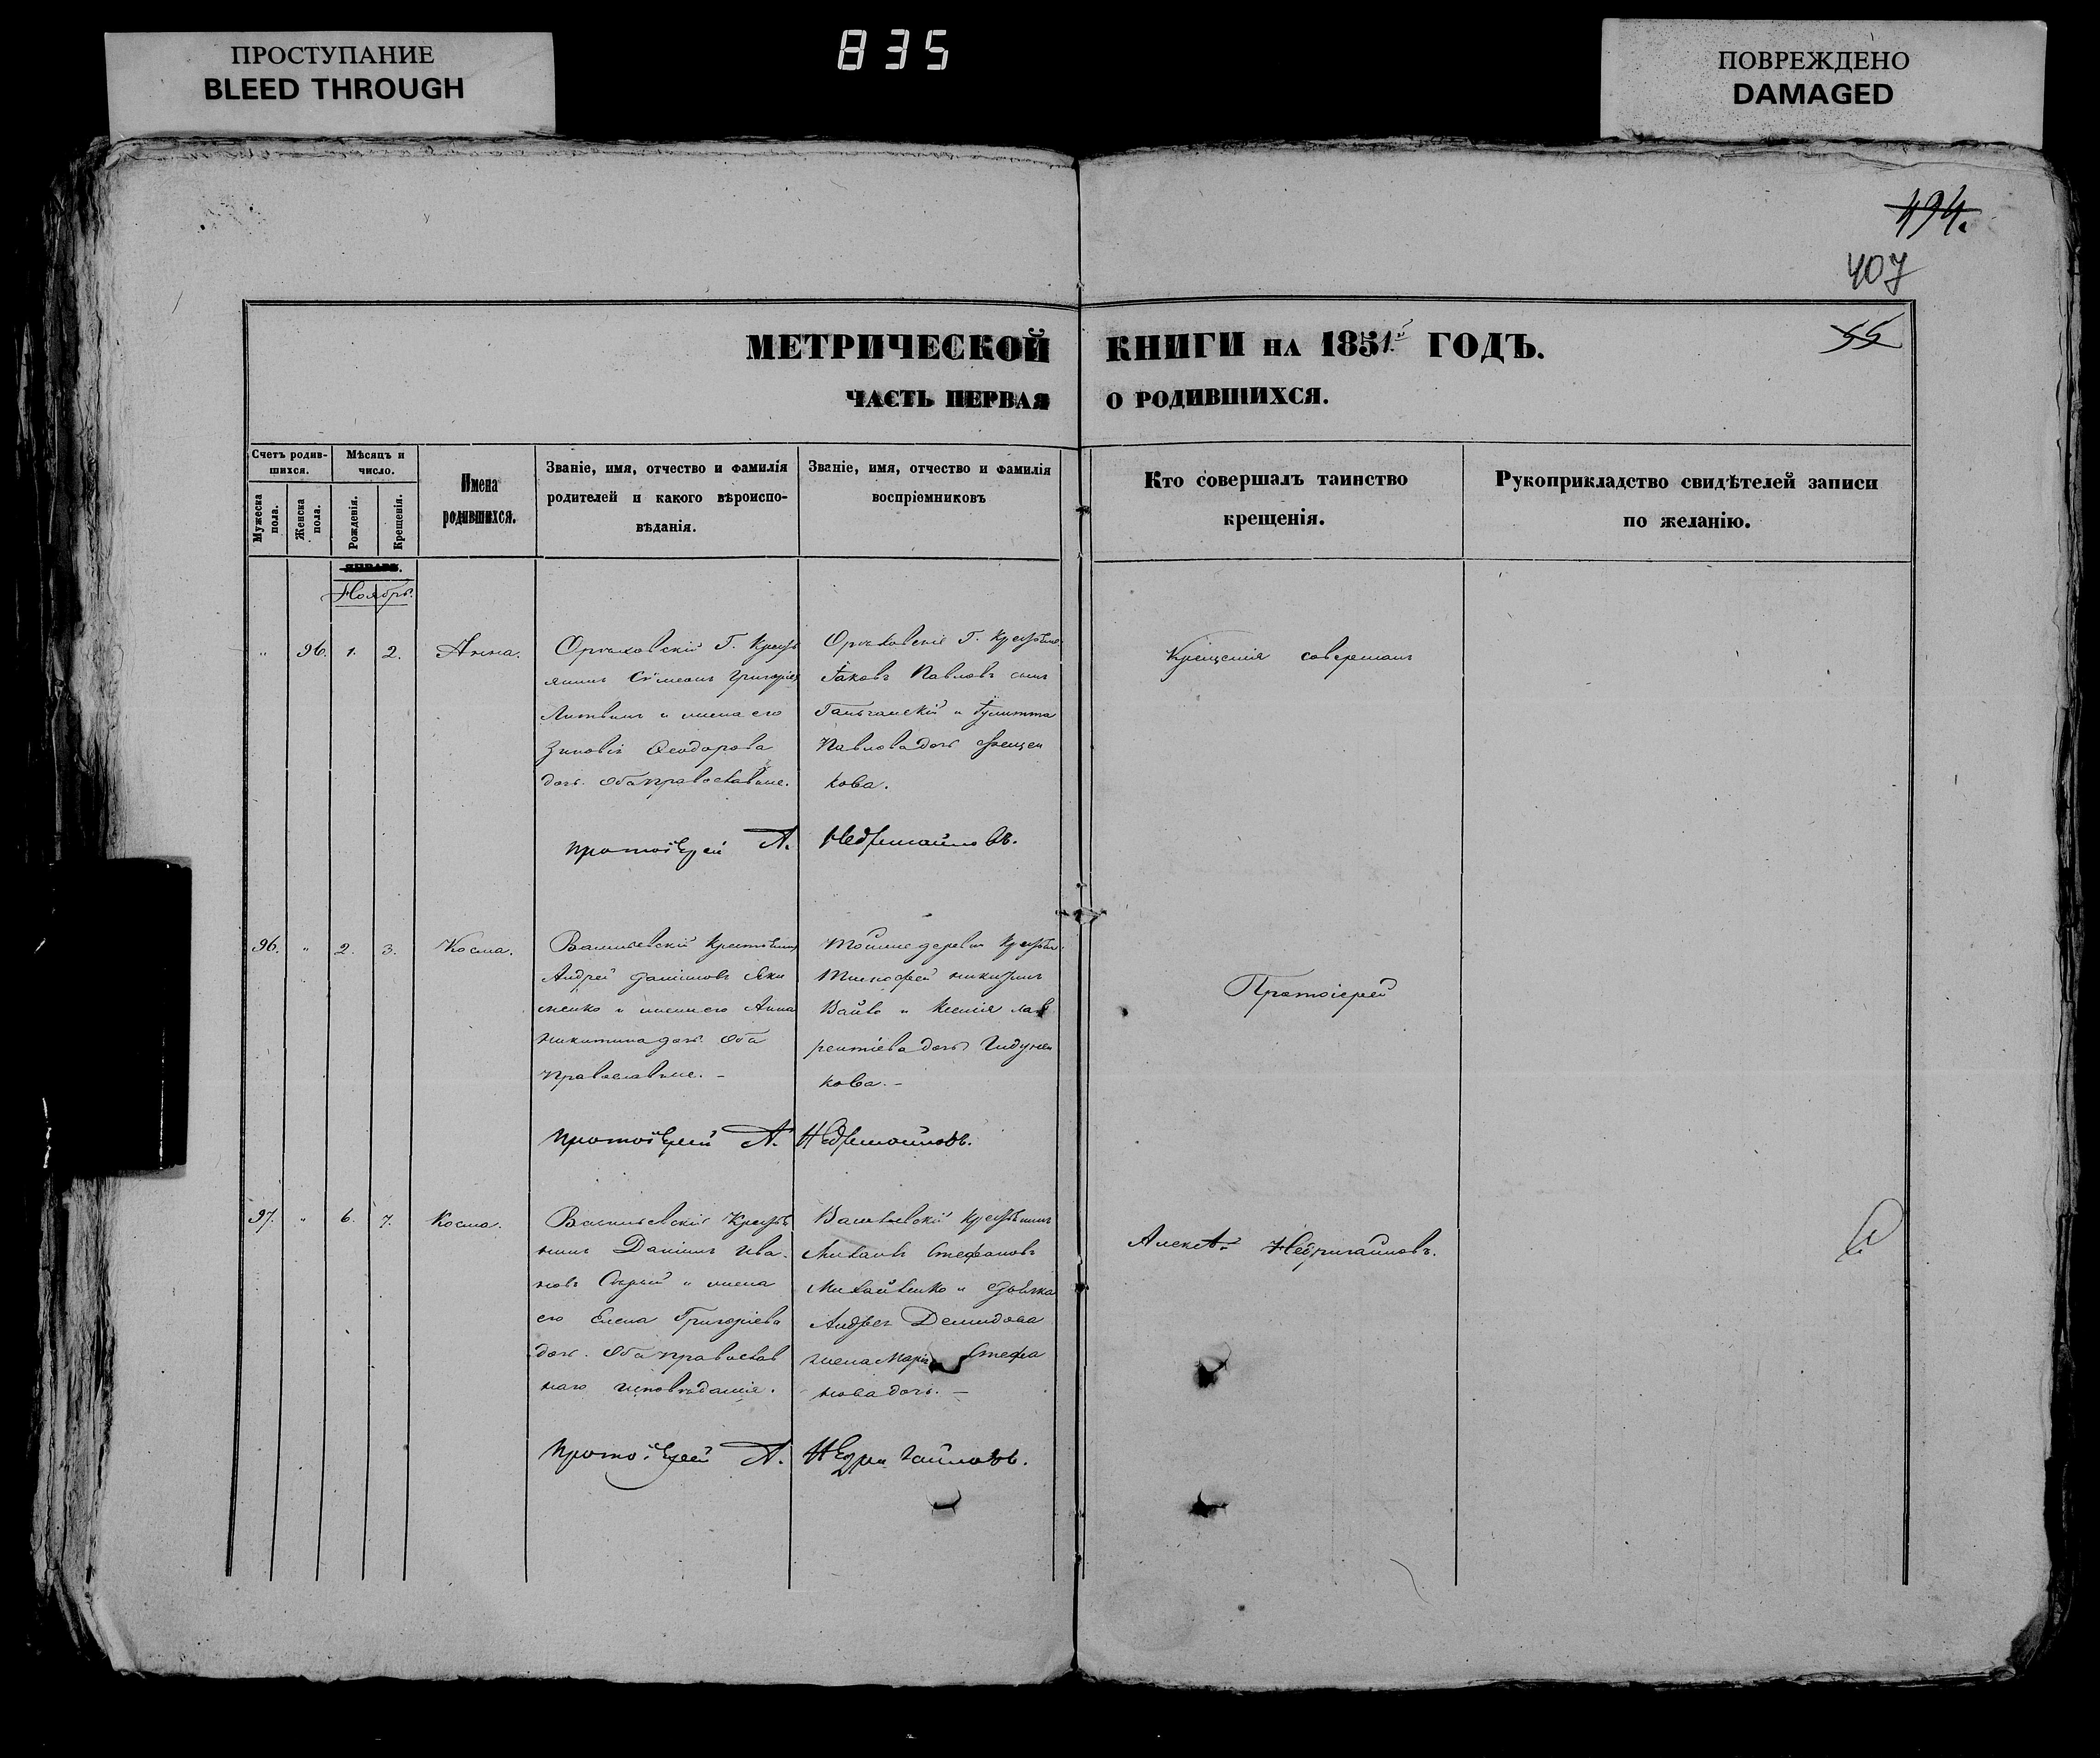 ПРОСТУПАНИЕ
BLEED THROUGH
835
ПОВРЕЖДЕНО
DAMAGED
494.
407
55
МЕТРИЧЕСКОЙ КНИГИ НА 1851 ГОДЪ.
ЧАСТЬ ПЕРВАЯ О РОДИВШИХСЯ.
Счетъ родив-
шихся.
Мужеска
пола.
Женска
пола.
Мѣсяцъ и
число.
Рожденія.
Крещенія.
Имена
родившихся.
Званіе, имя, отчество и фамилія
родителей и какого вѣроиспо-
вѣданія.
Званіе, имя, отчество и фамилія
воспріемниковъ
Кто совершалъ таинство
крещенія.
Рукоприкладство свидѣтелей записи
по желанію.
ЯНВАРЬ.
Ноябрь.
" 96. 1. 2. Анна.
Григорія
Литвинъ и жена его
Ѳеодорова
дочь. оба православные.
Іаковъ Павловъ сынъ
и Іулитта
Павлова дочь
кова.
Крещенія совершалъ
протоіерей А. Недригайловъ.
96. " 2. 3. Косма.
Васильевскій крестьянинъ
Андрей Даніиловъ Яки
менко и жена его Анна
Никитина дочь. Оба
православные. –
Тойже деревни
Тимофей Никитинъ
и Ксенія Лав
рентіева дочь
кова. –
Протоіерей
протоіерей А. Недригайловъ.
97. " 6. 7. Косма.
Васильевскій Крестья
нинъ Даніилъ Ива-
новъ и жена
его Елена Григоріева
дочь. Оба православ
наго исповѣданія.
Васильевскій крестьянинъ
Михаилъ Стефановъ
Михайленко и
Андрея Демидова
жена Марія Стефа
нова дочь. –
Недригайловъ.
протоіерей А. Недригайловъ.